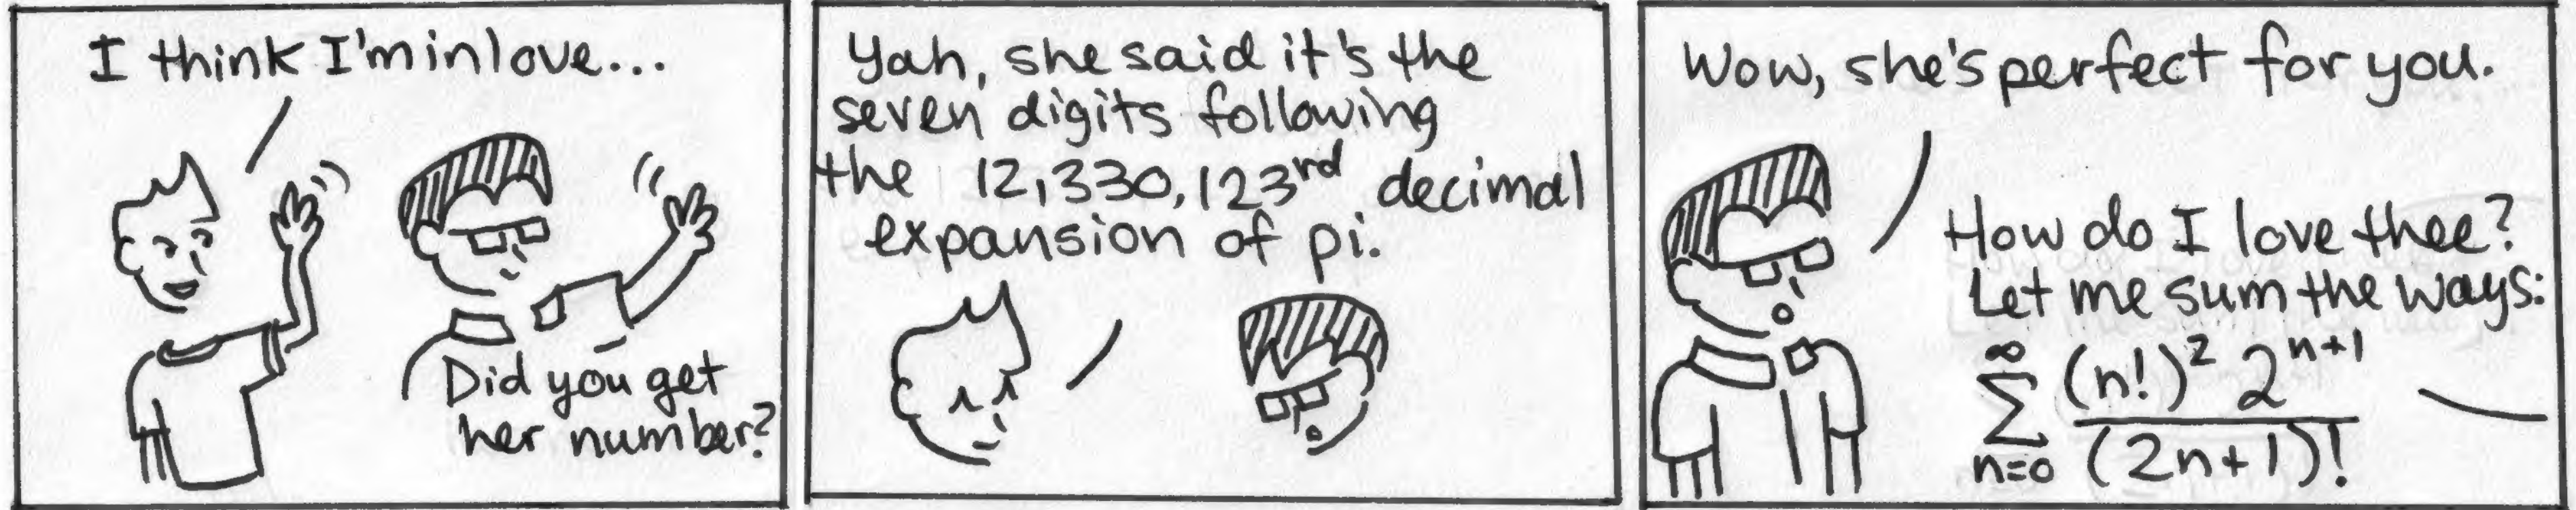 I think I'm in love...
Did you get
her number?
Yah, she said it's the
seven digits following
the 12,330,123rd decimal
expansion of pi.
Wow, she's perfect for you.
How do I love thee?
Let me sum the ways:
∞
∑ (n!)² 2ⁿ⁺¹ / (2n+1)!
n=0